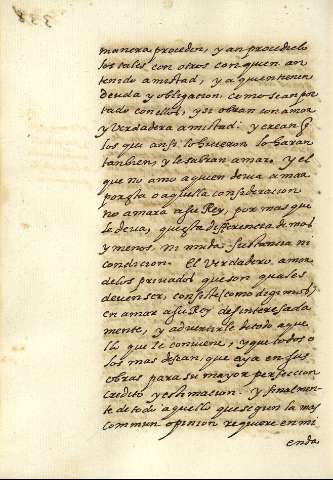 manera proceden, y an procedido
los tales con otros con quien an
tenido amistad, y a quien tienen
deuda y obligacion, como se an por
tado con ellos, y si obran con amor
y verdadera amistad. y crean q
los que ansi lo hicieron lo haran
tanbien, y le sabran amar. y el
que no amo a quien devia amar
por esta o aquella consideracion
no amara a su Rey, por mas que
le deva, que esta differencia de mas
y menos, ni muda sustancia ni
condicion. El verdadero amor
de los privados que son quales
deven ser, consiste (como digimos)
en amar a su Rey desinteresada
mente, y advertirle de todo aque
llo que le conviene, y que todos o
los mas desean, que aya en sus
obras para su mayor perfeccion
credito y estimacion. y finalmen
te de todo aquello que segun la mas
commun opinion requiere enmi
enda